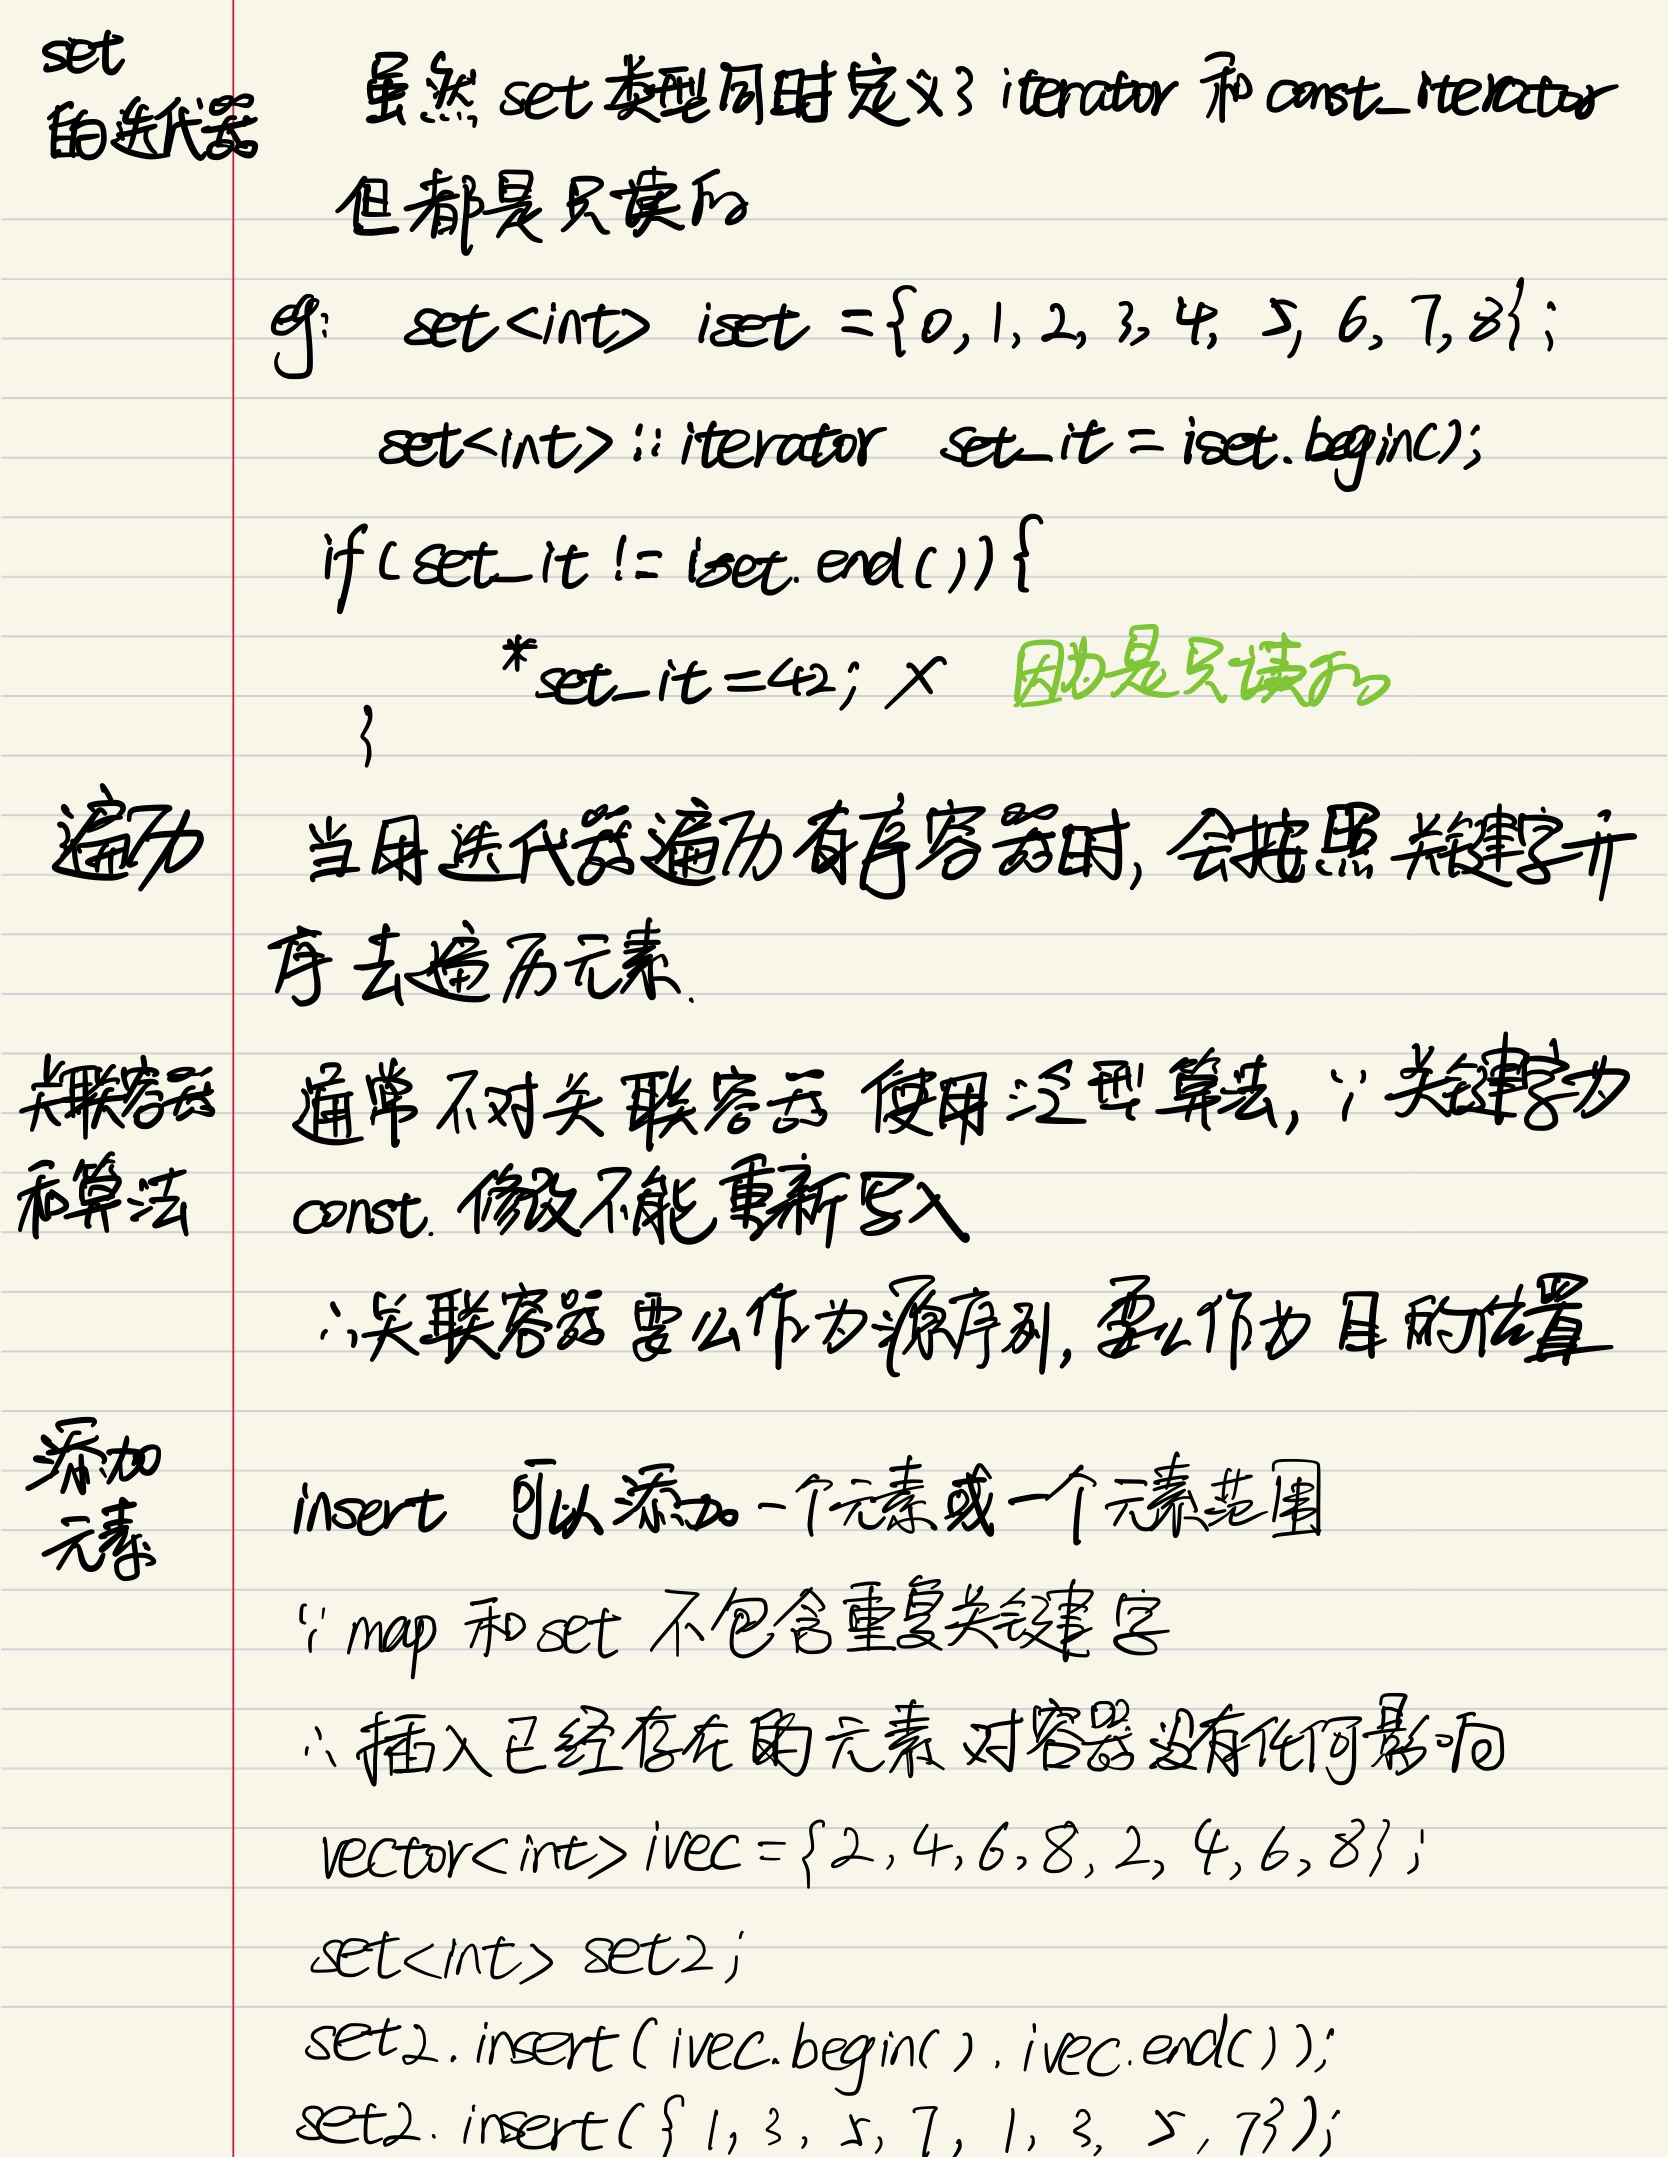 set
的迭代器
虽然 set 类型同时定义了 iterator 和 const_iterator
但都是只读的
eg: set<int> iset ={0,1,2,3,4,5,6,7,8};
set<int>::iterator set_it = iset.begin();
if(set_it != iset.end()){
*set_it=42; × 因为是只读的
}
遍历
当用迭代器遍历有序容器时, 会按照关键字升
序去遍历元素.
关联容器
和算法
通常不对关联容器使用泛型算法, ∵关键字为
const. 修改不能重新写入
∴关联容器要么作为源序列, 要么作为目的位置
添加
元素
insert 可以添加一个元素或一个元素范围
∵ map 和 set 不包含重复关键字
∴插入已经存在的元素对容器没有任何影响
vector<int> ivec={2,4,6,8,2,4,6,8};
set<int> set2;
set2.insert(ivec.begin().ivec.end());
set2.insert({1,3,5,7,1,3,5,7});